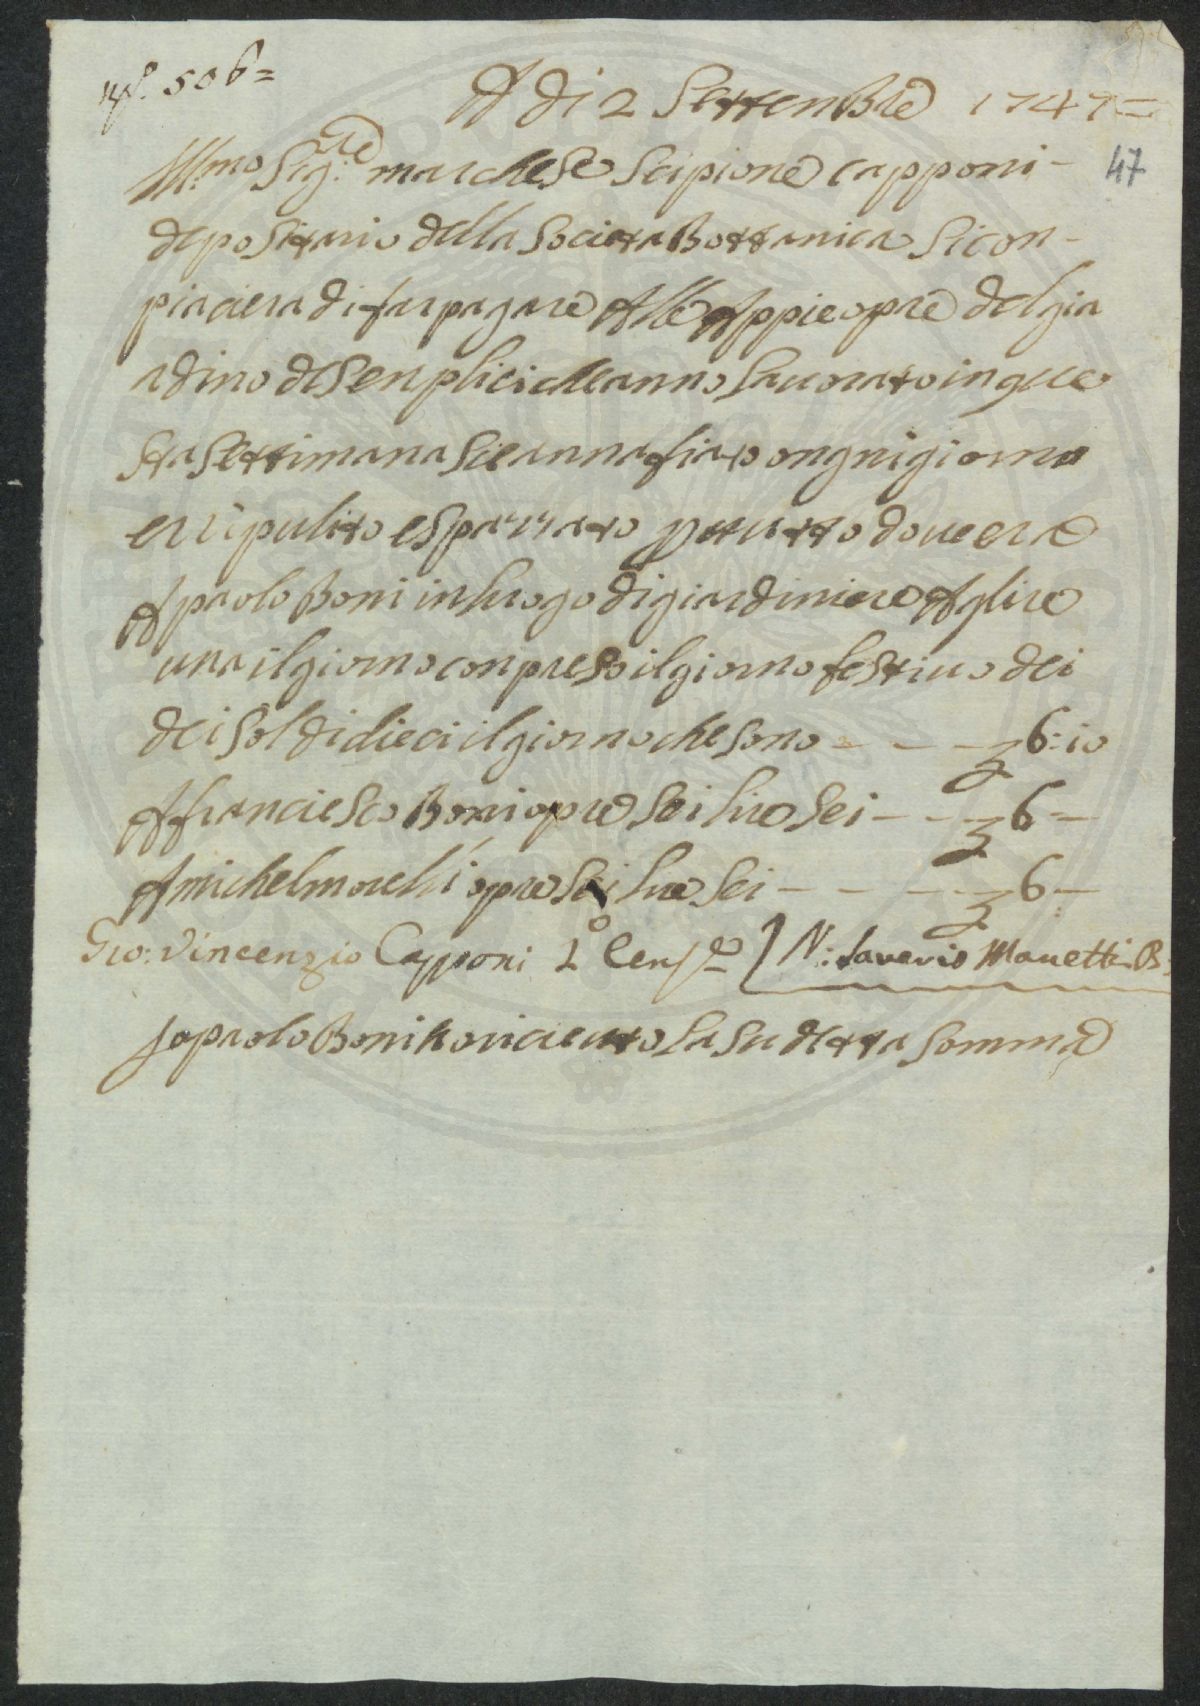 N.º 506=
A di 2 Settenbre 1747=
47
Ill:mo Sig:re marchese Scipione capponi-
depositario della Societa Bottanica Si con-
piaciera di far pagare Alle Appie opre del gia
rdino de Senplici che anno Lauorato in que
sta Settimana Si e annafiato ongni giorno
e ripulito e spazzato p tutto doue era
A paolo Boni in luogo di giardiniere A lire
una il giorno conpreso il giorno festiuo dei
dei Soldi dieci il giorno che Sono - - - 6:10
A franciesco Boni opre Sei lire Sei - - - 6 -
A michel morelli opre Sei lire Sei - - - - 6 -
Gio: Vincenzio Capponi 1º Cens.e N: Saverio Manetti B:
Jo paolo Boni ho riceuto La Su detta Somma